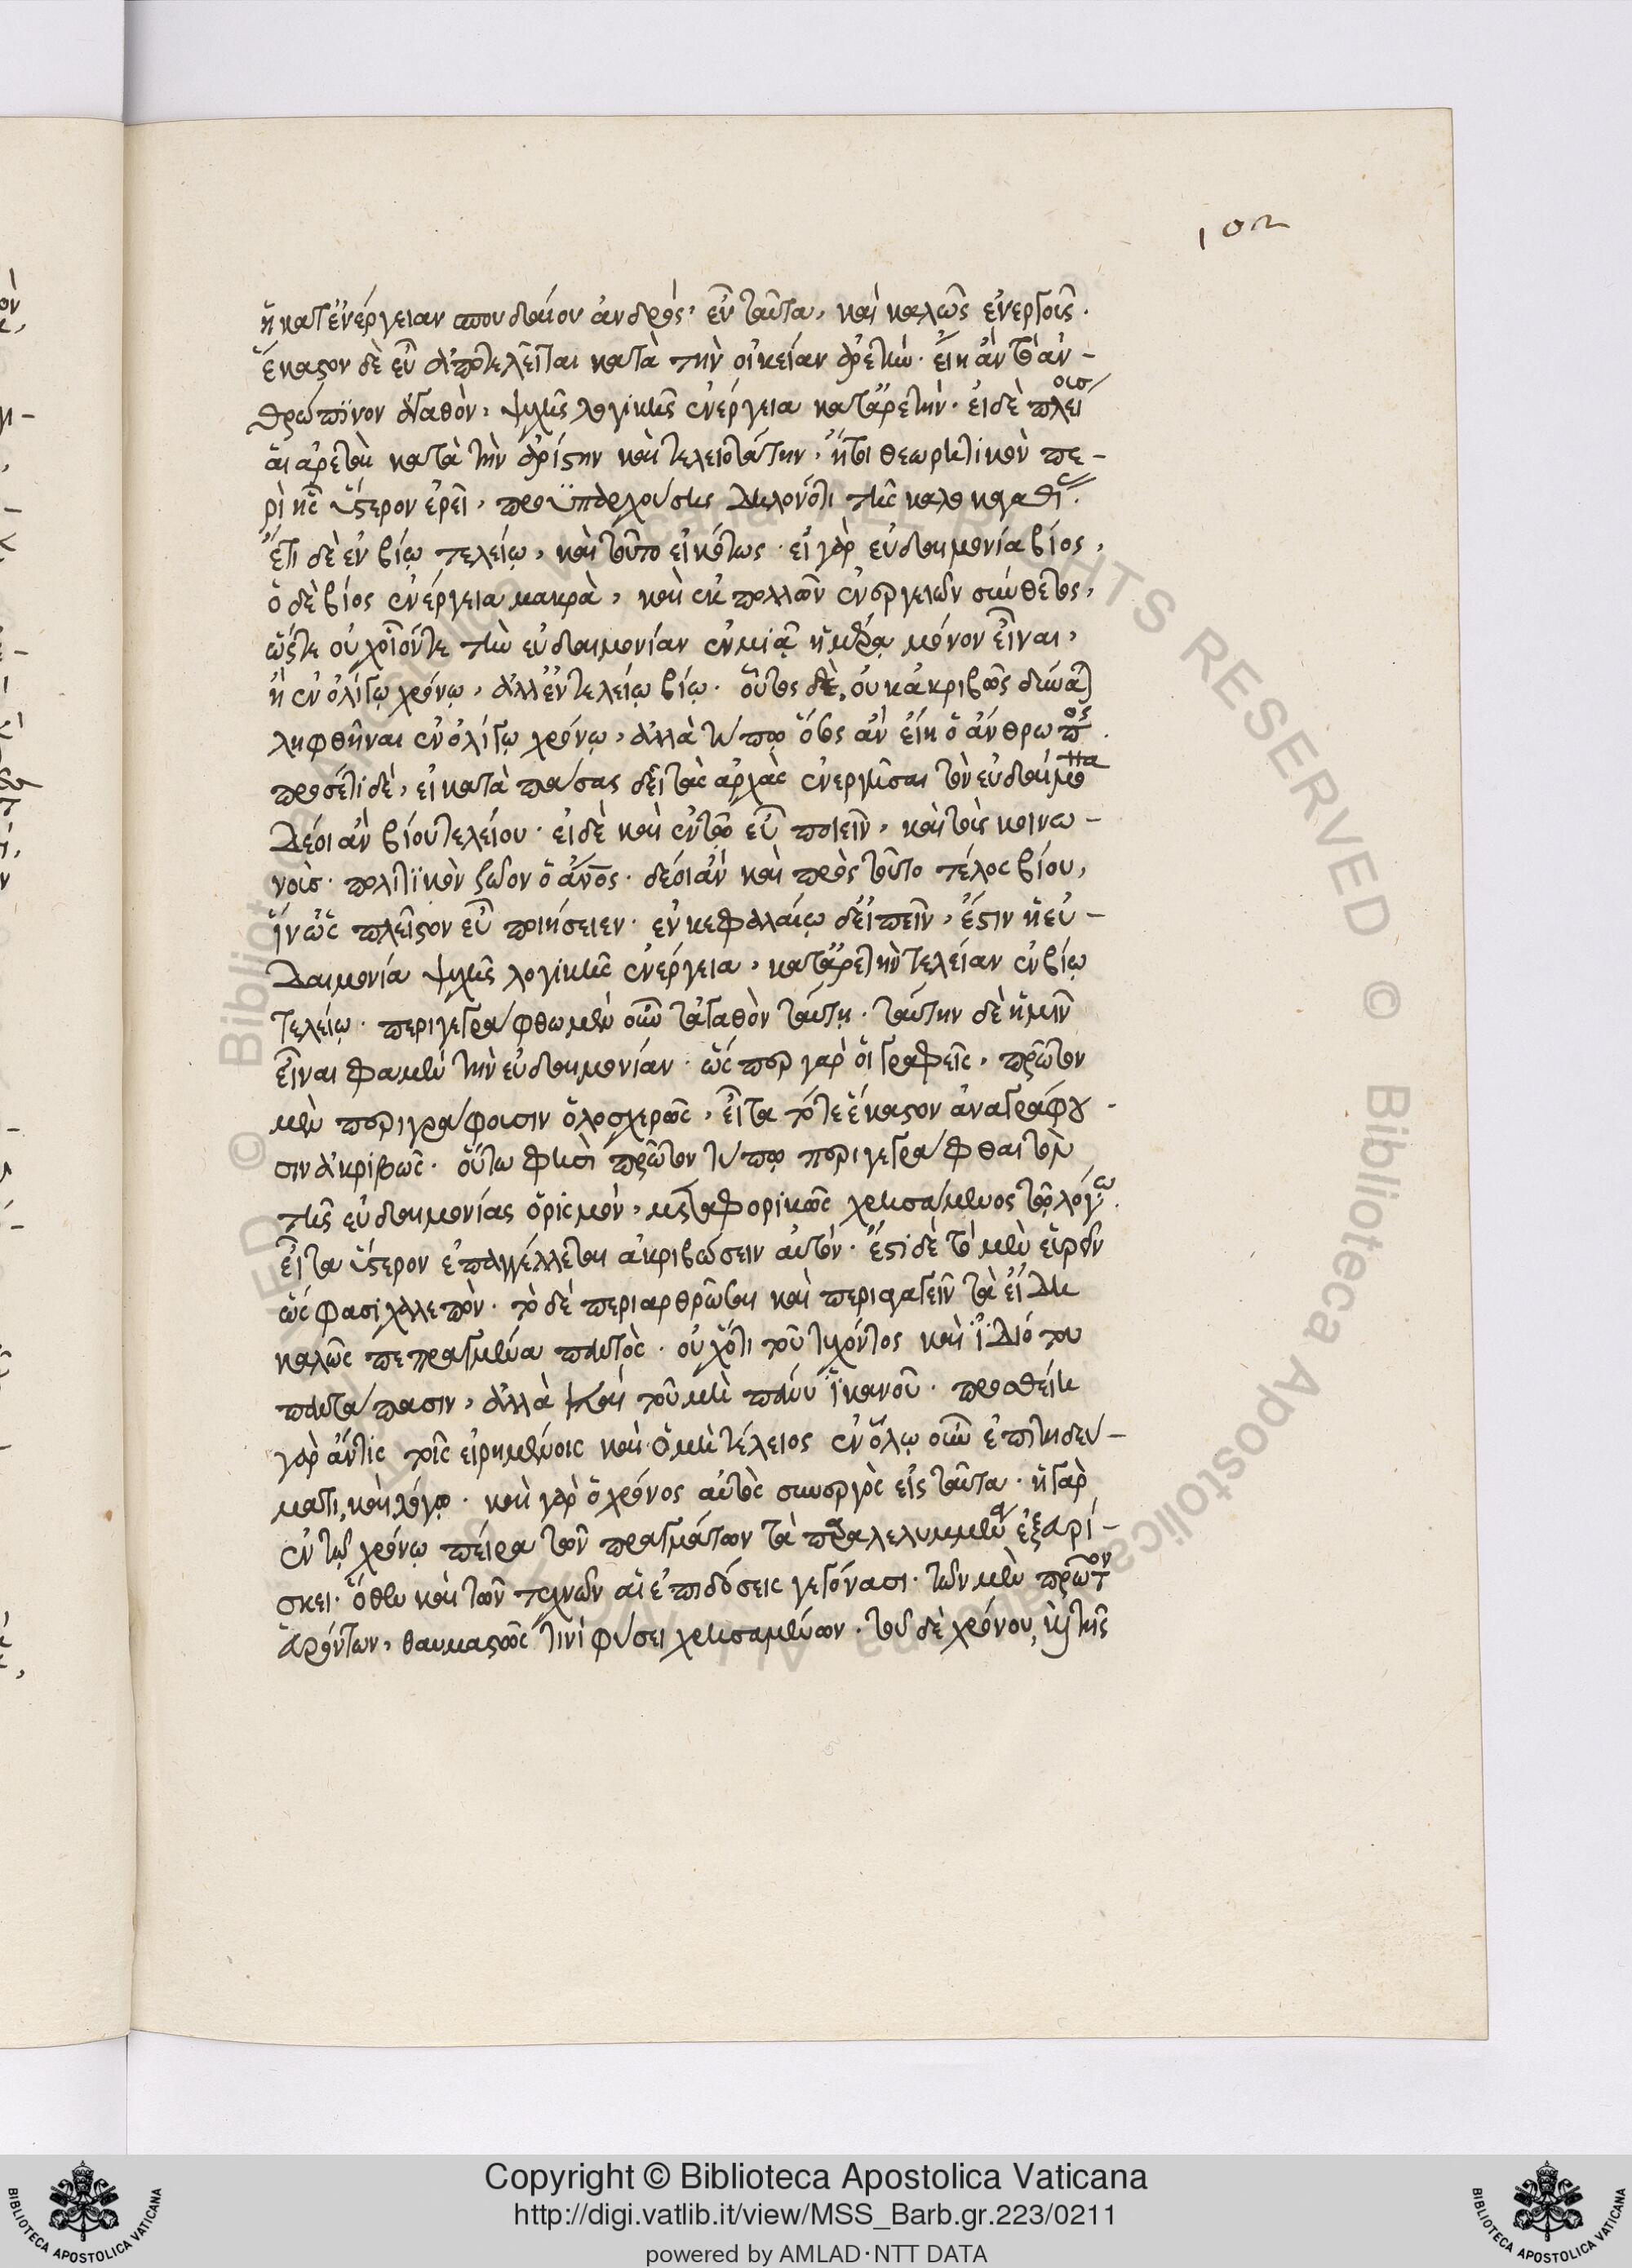 102
ἢ κατ' ἐνέργειαν σπουδαίου ἀνδρός, εὖ ταῦτα, καὶ καλῶς ἐνεργοῖς.
ἕκαστον δὲ εὖ ἀποτελεῖται κατὰ τὴν οἰκείαν ἀρετήν. εἴη ἂν τὸ ἀν-
θρώπινον ἀγαθὸν, ψυχῆς λογικῆς ἐνέργεια κατ' ἀρετήν. εἰ δὲ πλείους
αἱ ἀρεταὶ κατὰ τὴν ἀρίστην καὶ τελειοτάτην, ἤτοι θεωρητικὸν πε-
ρὶ ἧς ὕστερον ἐρεῖ, προϋπαρχούσης δηλονότι τῆς
ἔτι δὲ ἐν βίῳ τελείῳ, καὶ τοῦτο εἰκότως. εἰ γὰρ εὐδαιμονία βίος,
ὁ δὲ βίος ἐνέργεια μακρὰ, καὶ ἐκ πολλῶν ἐνεργειῶν σύνθετος,
ὥστε οὐχ οἷόν τε τὴν εὐδαιμονίαν ἐν μιᾷ ἡμέρᾳ μόνον εἶναι,
ἢ ἐν ὀλίγῳ χρόνῳ, ἀλλ' ἐν τελείῳ βίῳ. οὗτος δὲ, οὐκ ἀκριβῶς δύναται
ληφθῆναι ἐν ὀλίγῳ χρόνῳ, ἀλλὰ τύπῳ ὅτος ἂν εἴη ὁ ἄνθρωπος.
προσέτι δὲ, εἰ κατὰ πάσας δεῖ τὰς ἀρχὰς ἐνεργῆσαι τὸν εὐδαίμονα
δέοι ἂν βίου τελείου. εἰ δὲ καὶ ἐν τῷ εὖ ποιεῖν, καὶ τοῖς κοινω-
νοῖς. πολιτικὸν ζῷον ὁ ἄνος. δέοι ἂν καὶ πρὸς τοῦτο τέλος βίου,
ἵν' ὡς πλεῖστον εὖ ποιήσειεν. ἐν κεφαλαίῳ δ' εἰπεῖν, ἔστιν ἡ εὐ-
δαιμονία ψυχῆς λογικῆς ἐνέργεια, κατ' ἀρετὴν τελείαν ἐν βίῳ
τελείῳ. περιγεγράφθω μὲν οὖν τἀγαθὸν ταύτῃ. ταύτην δὲ ἡμῖν
εἶναι φαμὲν τὴν εὐδαιμονίαν. ὥσπερ γὰρ οἱ γραφεῖς, πρῶτον
μὲν περιγράφουσιν ὁλοσχερῶς, εἶτα τότε ἕκαστον ἀναγράφου-
σιν ἀκριβῶς. οὕτω φησὶ πρῶτον τύπῳ περιγεγράφθαι τὸν
τῆς εὐδαιμονίας ὁρισμόν, μεταφορικῶς χρησάμενος τῷ λόγῳ.
εἶτα ὕστερον ἐπαγγέλλεται ἀκριβώσειν αὐτόν. ἔστι δὲ τὸ μὲν εὑρεῖν
ὥς φασι χαλεπὸν. τὸ δὲ περιαρθρῶσαι καὶ περιαγαγεῖν τὰ εἴδη
καλῶς πεπραγμένα παντὸς. οὐχ ὅτι τοῦ τυχόντος καὶ ἰδιότου
παντάπασιν, ἀλλὰ καὶ τοῦ μὴ πάνυ ἱκανοῦ. προσθείη
γὰρ ἄν τις τοῖς εἰρημένοις καὶ ὁ μὴ τέλειος ἐν ὅλῳ οὖν ἐπιτηδεύ-
ματι, καὶ λόγῳ. καὶ γὰρ ὁ χρόνος αὐτὸς συνεργὸς εἰς ταῦτα. ἡ γὰρ
ἐν τῷ χρόνῳ πεῖρα τῶν πραγμάτων τὰ παραλελυμμένα ἐξαρί-
σκει. ὅθεν καὶ τῶν τεχνῶν αἱ ἐπιδόσεις γεγόνασι. τῶν μὲν πρῶτον
εὑρόντων, θαυμαστῶς τινὶ φύσει χρησαμένων. τοῦ δὲ χρόνου, καὶ τῆς
© Biblioteca Apostolica Vaticana ALL RIGHTS RESERVED
Copyright © Biblioteca Apostolica Vaticana
http://digi.vatlib.it/view/MSS_Barb.gr.223/0211
powered by AMLAD·NTT DATA
BIBLIOTECA APOSTOLICA VATICANA
BIBLIOTECA APOSTOLICA VATICANA